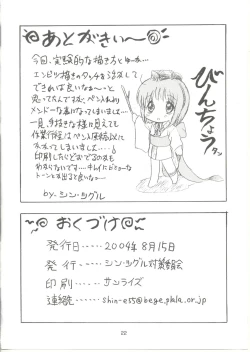 あとがきぃ〜
今回、実験的な描き方とゆーか…
エンピツ描きのタッチを活かして
できれば良いなぁ〜と
思ってたんですが、ペン入れより
メンドーな事になってしまいました…
一見、手抜きな様に見えても
作業行程はペン入れ原稿以上に
なってしまいました…。
印刷したらどおでるのかも
わからないです…。
トーンとかも出てると良いな…
by シン・ツグル
びんちょうタン
おくづけ
発行日・・・・・2004年8月15日
発行・・・・シン・ツグル対策委員会
印刷・・・・・サンライズ
連絡・・・・・shin-e55@bege.plala.or.jp
22